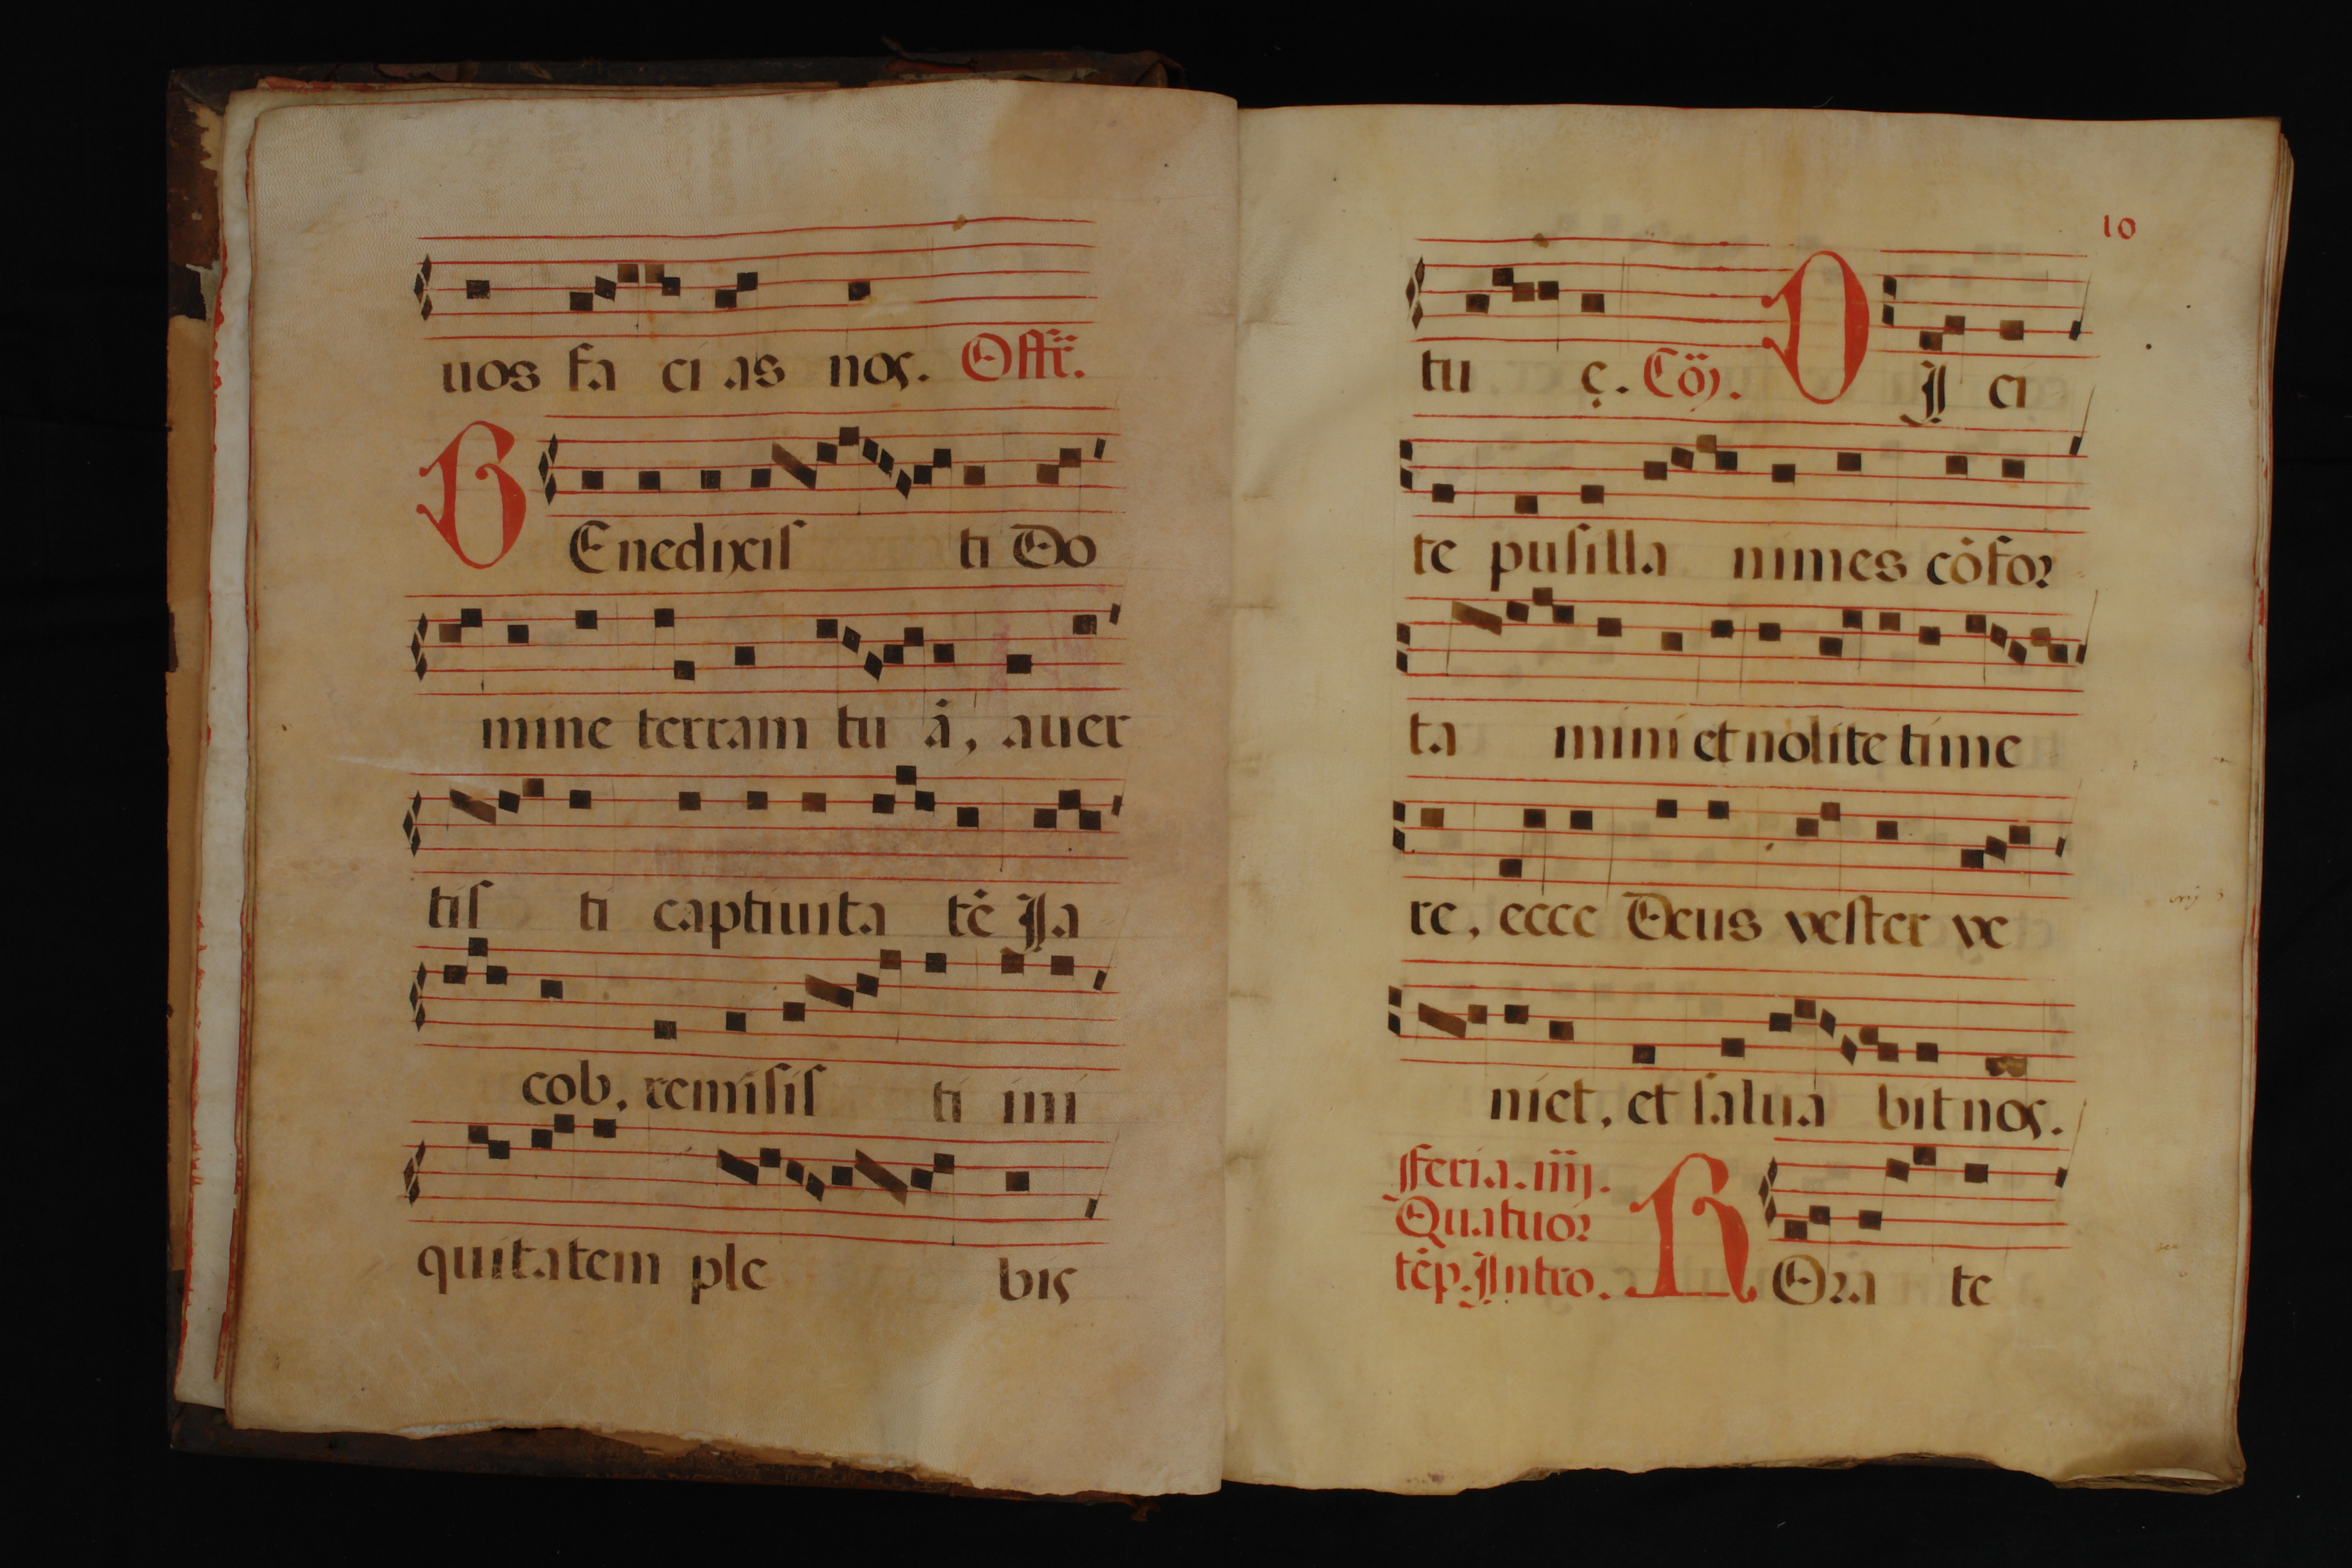 uos fa ci as nos. Offr̃.
BEnedixis ti Do
mine terram tu ã, auer
tis ti captiuita tẽ Ja
cob, remisis ti ini
quitatem ple bis
10
tu ę. Cõ. DJ ci
te pusilla nimes cõfor
ta mini et nolite time
re, ecce Deus vester ve
niet, et salua bit nos.
Feria. iiij.
Quatuor
tẽp. Intro. ROra te